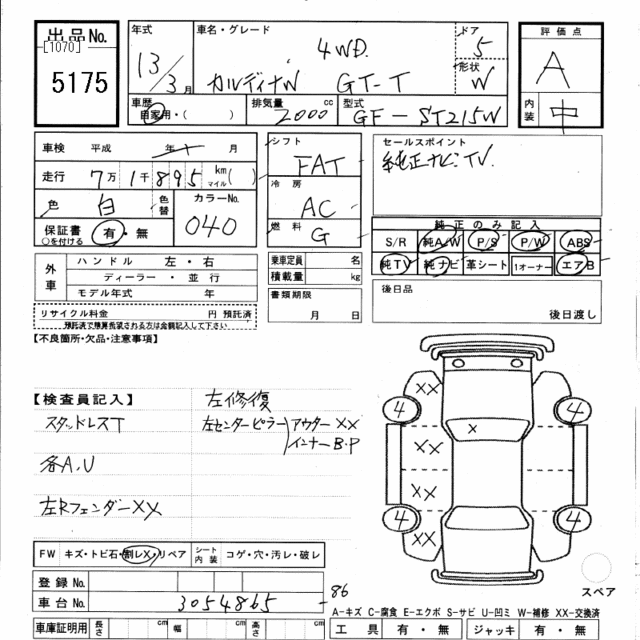 出品No.
[1070]
5175
年式
13/3月
車名・グレード
4WD
カルディナW GT-T
ドア
5
形状
W
車歴
自家用・( )
排気量 cc
2000
型式
GF-ST215W
評価点
A
内装
中
車検 平成 年 月
走行 7万1千895 km マイル ( )
色 白 色替
カラーNo.
040
保証書 有・無
○を付ける
シフト
FAT
冷房
AC
燃料
G
セールスポイント
純正ナビ・TV.
純正のみ記入
S/R 純A/W P/S P/W ABS
純TV 純ナビ 革シート 1オーナー エアB
外車
ハンドル 左・右
ディーラー・並行
モデル年式 年
乗車定員 名
積載量 kg
書類期限
月 日
後日品
後日渡し
リサイクル料金 円 預託済
預託済で精算希望される方は金額記入して下さい
【不良箇所・欠品・注意事項】
【検査員記入】
スタッドレスT
各A,U
左Rフェンダー××
左修復
左センターピラー アウター××
インナーB・P
××
4
4
×
××
××
4
4
××
スペア
FW キズ・トビ石・割レX・リペア
シート内装 コゲ・穴・汚レ・破レ
登録No.
車台No. 3054865
-86
A-キズ C-腐食 E-エクボ S-サビ U-凹ミ W-補修 XX-交換済
車庫証明用 長さ cm 幅 cm 高さ cm
工具 有・無 ジャッキ 有・無